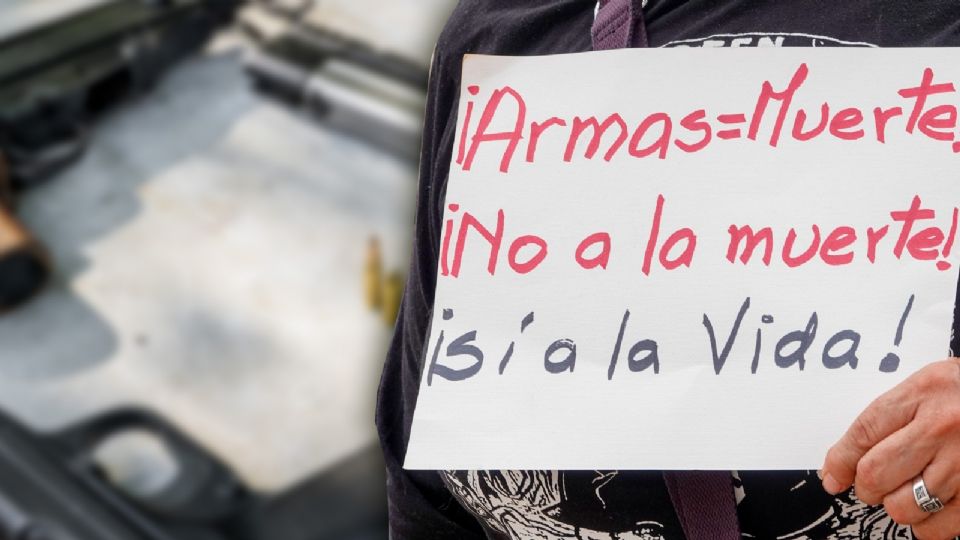 EEN
¡Armas=Muerte!
¡No a la muerte!
¡sí a la Vida!